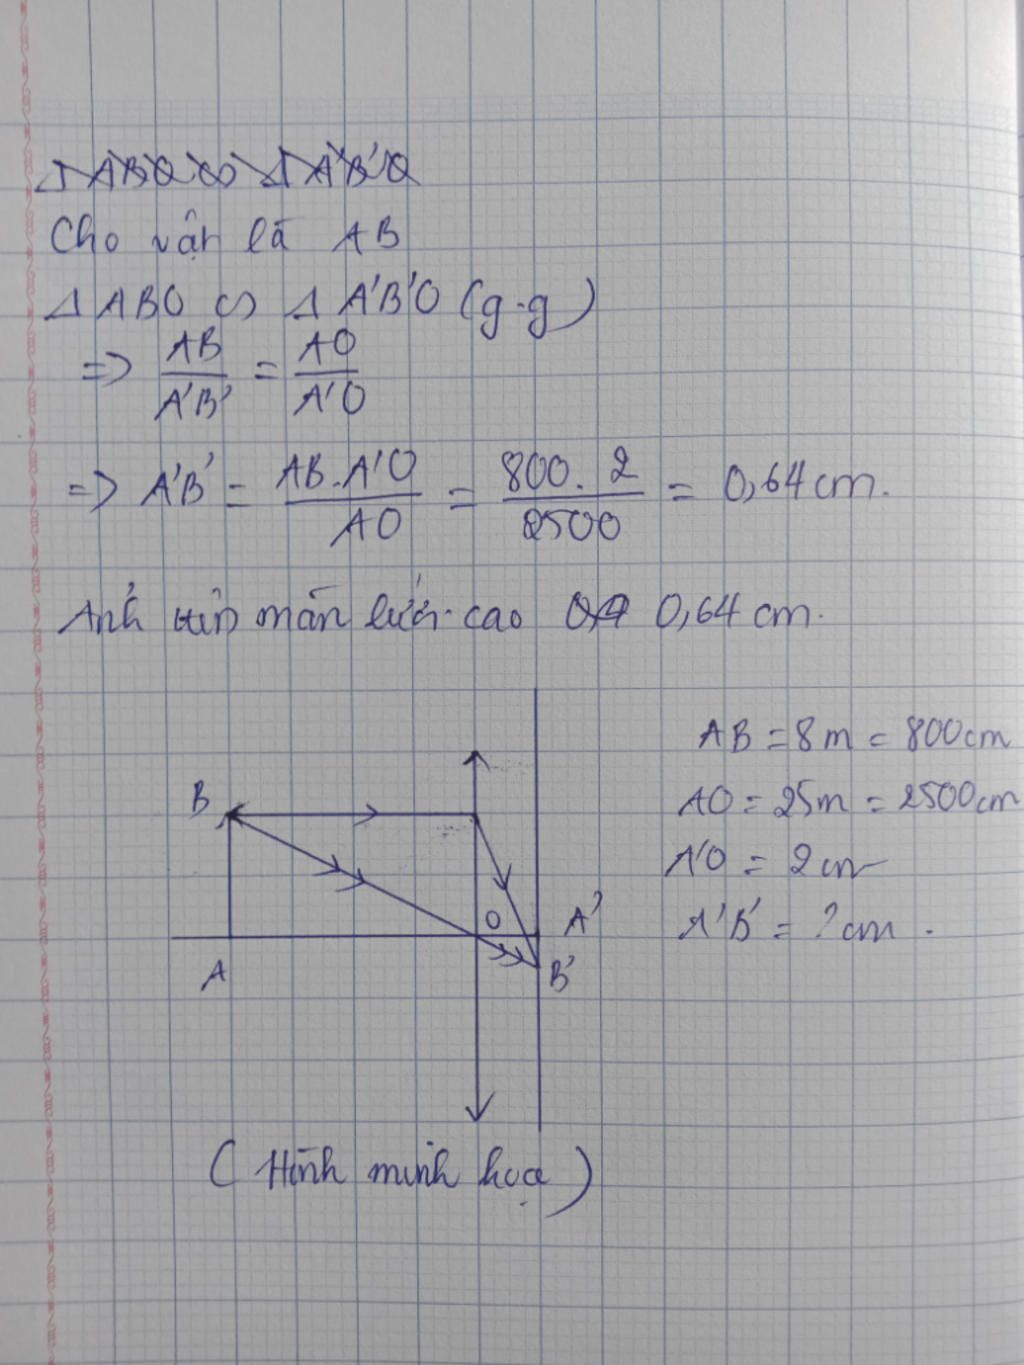 Δ ABO ∽ Δ A'B'O
Cho vật là AB
Δ ABO ∽ Δ A'B'O (g.g)
=> AB/A'B' = AO/A'O
=> A'B' = AB.A'O/AO = 800.2/2500 = 0,64 cm.
Ảnh trên màn lưới cao 0,64 cm.
AB = 8m = 800cm
B
AO = 25m = 2500cm
A'O = 2cm
O A'
A'B' = ? cm.
A
B'
(Hình minh hoạ)